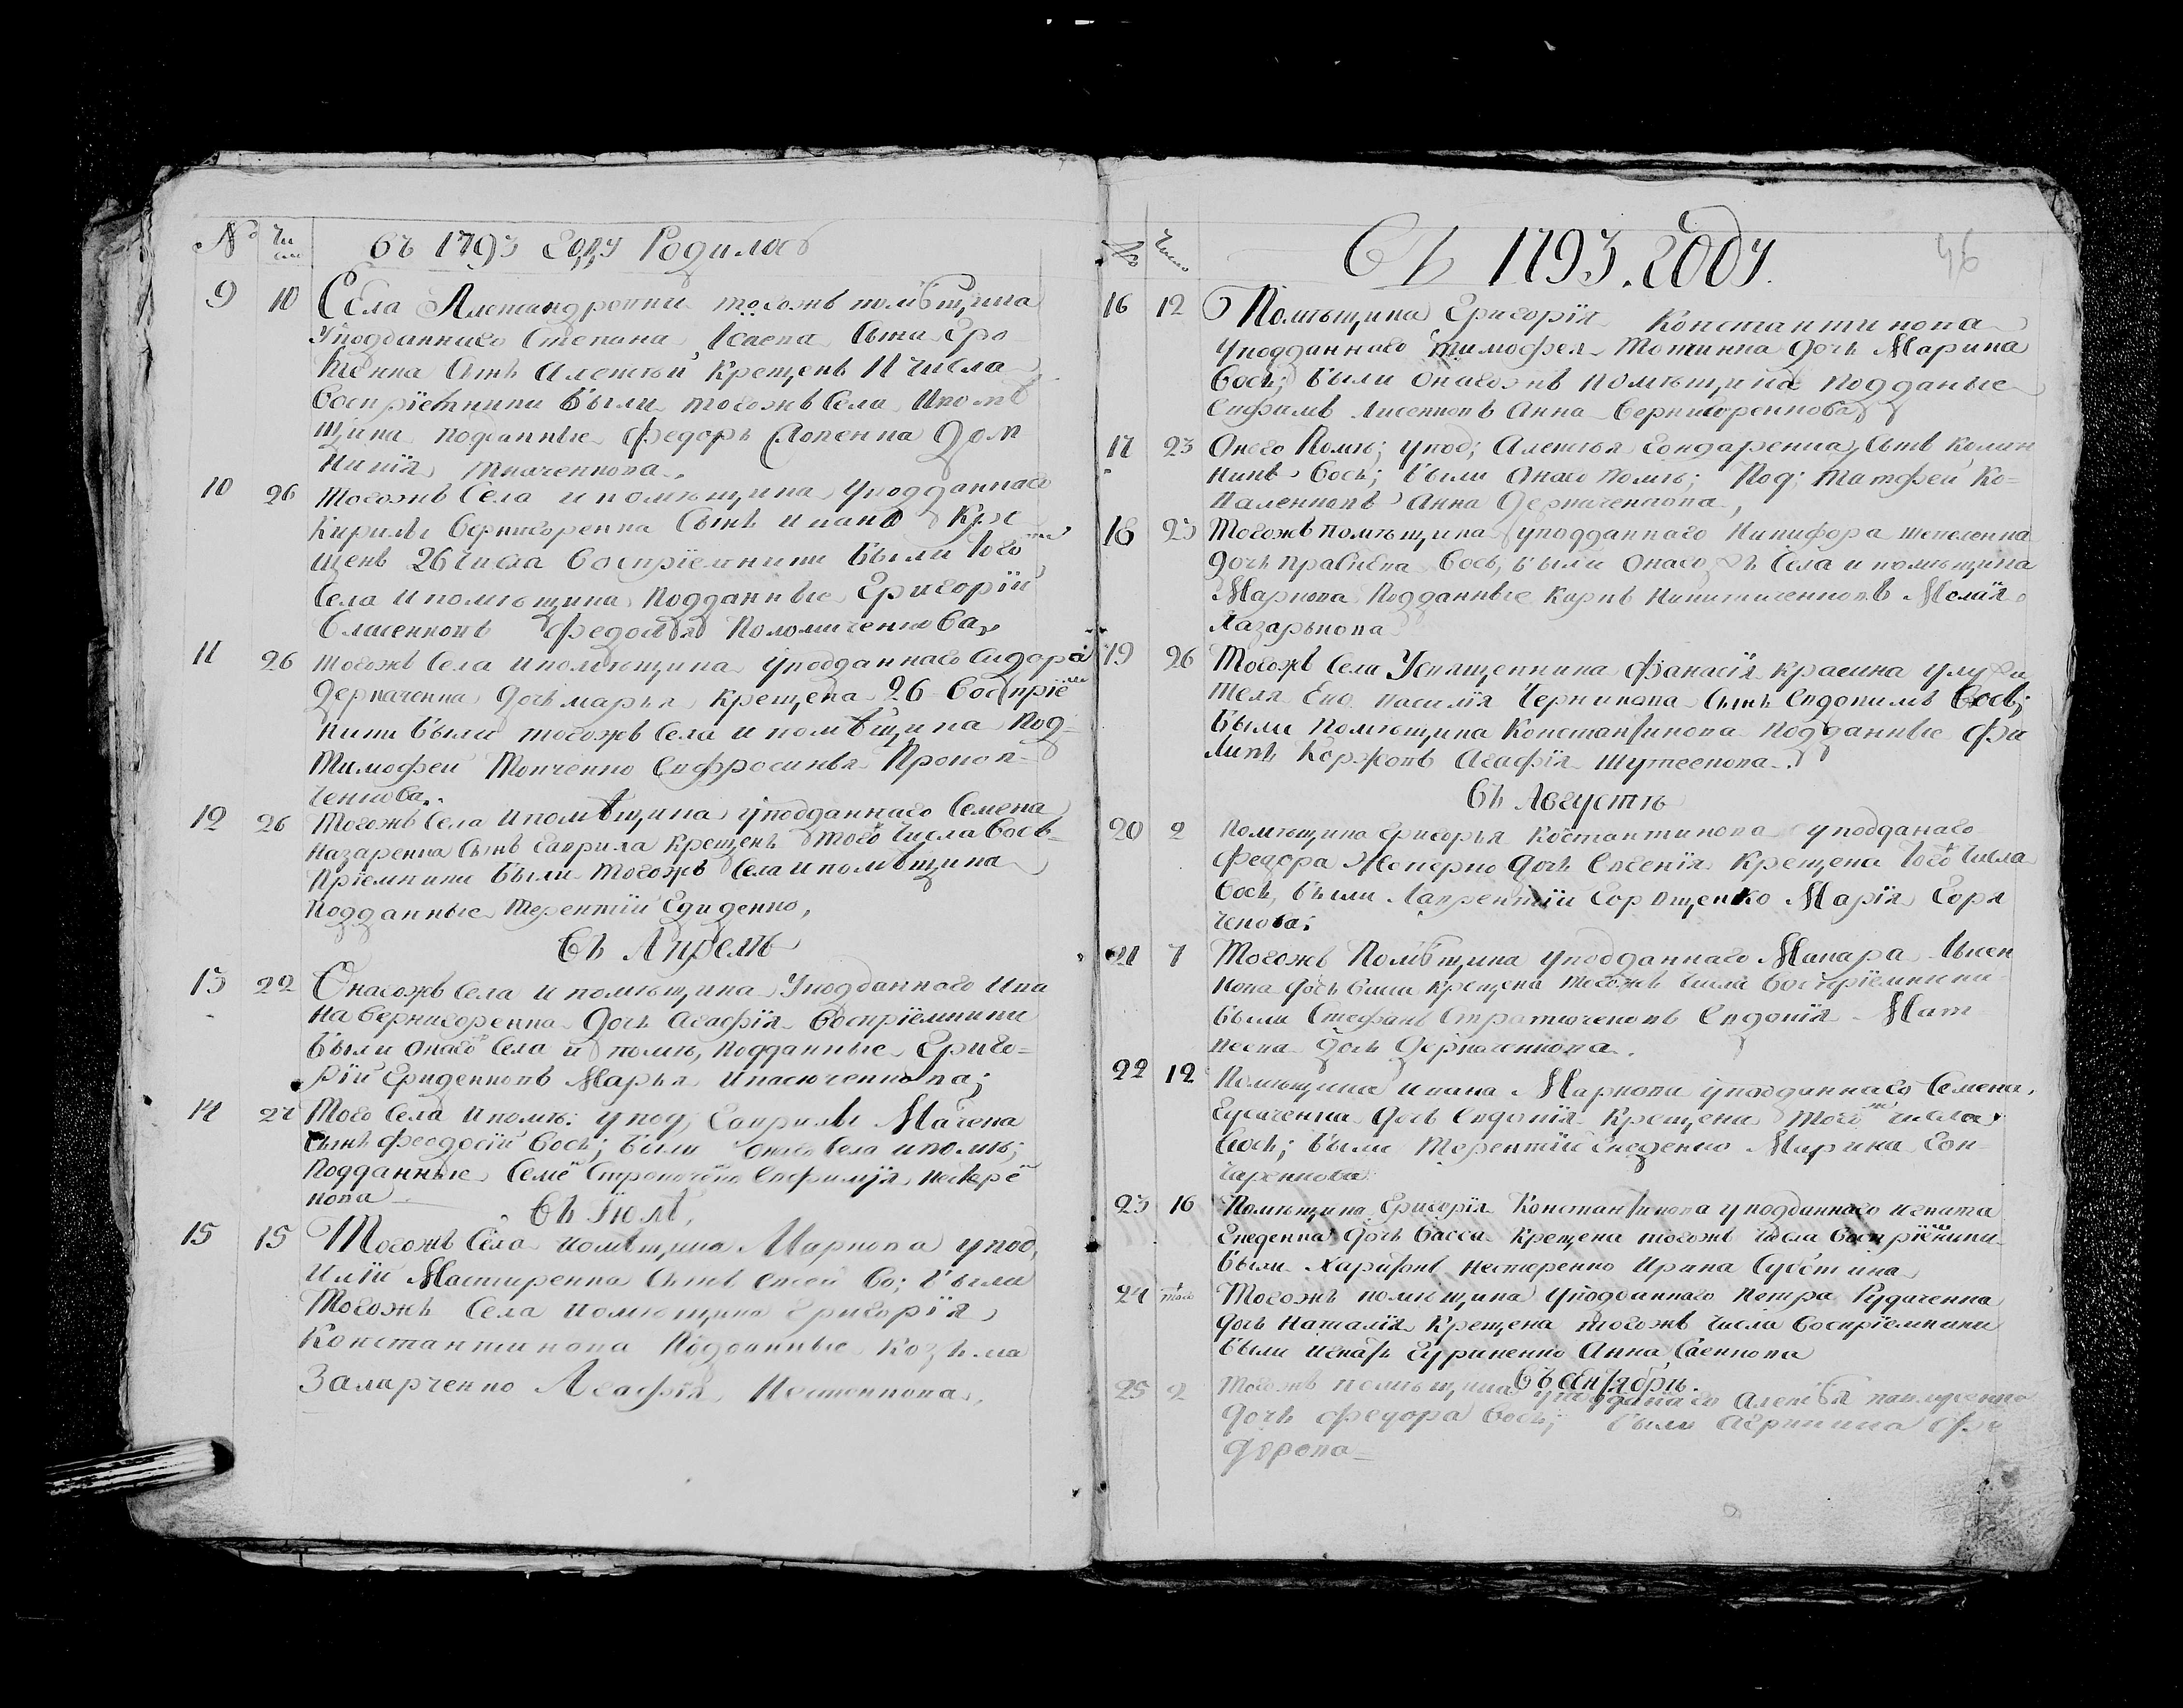 № Чи
сло
въ 1793 году Родилось
9 10 Села Александровки тогожъ помѣщика
уподданнаго Степана Исаева сына Еро
хѣенка сынъ Алексѣй крещенъ 11 числа
воспріемники были тогожъ села ипомѣ
щика подданные Федоръ Лопенка Дом
никія Ткаченкова.
10 26 Тогожъ села и помѣщика уподданнаго
Кирилы Вернигоренка сынъ иванъ кре
щенъ 26 числа воспріемники были того
села и помѣщика подданные Григорій
Власенковъ Федосія Коломиченкова
11 26 тогожъ села ипомѣщика уподданнаго Сидора
Деркаченка дочь марья крещена 26 воспріем
ники были тогожъ села и помѣщика под
Тимофей Ткаченко Евфросинья Прокоп
ченкова.
12 26 Тогожъ села ипомѣщика уподданнаго Семена
Назаренка сынъ гаврила крещенъ того числа вос
пріемники были тогожъ села ипомѣщика
подданные Терентій Гдиденко,
въ Апрелѣ
13 22 Онагожъ села и помѣщика уподданнаго Ива
на Вернигоренка дочь Агафія воспріемники
были онаго села и помѣ, подданные Григо=
рій Гриденковъ Марья Ивасюченкова;
14 27 Того села ипомѣ: упод; Гаврилы Мачена
сынъ феодосій вос; были онаго села ипомѣ;
подданные Семе
нова
въ Іюлѣ,
15 15 Тогожъ села помѣщика Маркова упод,
Иліи Мастиренка сынъ Евсей во; были
Тогожъ села помѣщика григорія
Константинова подданные Козьма
Захарченко Агафія Костенкова.
№ Число
Въ 1793. году.
46
16 12 Помѣщика Григорія Константинова
уподданнаго тимофея дочь Марина
восп; были онагожъ помѣщика подданые
Евфимъ Лисенковъ Анна Вернигоренкова
17 23 Онаго помѣ; упод; Алексѣя гондаренка сынъ калин
никъ восп; были онаго помѣ; под; Матфей Ко=
валенковъ Анна Деркаченкова,
18 23 Тогожъ помѣщика уподданнаго Никифора шепеленка
дочь правсковя восп, были онаго жъ села и помѣщика
Маркова подданные Карпъ Никитиченковъ Мелан
Хазарькова
19 26 Тогожъ села Усвященника Афанасія красина услужи
теля его василія Черникова сынъ Евдокимъ восп;
были помѣщика Константинова подданные Фи
липъ Коржовъ Агафія Шутеекова.
въ Августѣ
20 2 помѣщика григорья Костантинова уподданаго
федора Жеперно дочь Евгенія крещена того числа
восп, были Лаврентій Горощенко Марія Горя
чекова.
21 7 Тогожъ помѣщика уподданнаго Макара Лысен
кова дочь васса крещена тогожъ числа воспріемники
были Стефанъ Стратюченковъ Евдокія Мат
веева дочь Деркаченкова.
22 12 Помѣщика ивана Маркова уподданнаго Семена
Гусаченка дочь Евдокія крещена того числа
восп; были Терентій Гнеденко Марина Гон
чаренкова
23 16 Помѣщика Григорія Константинова уподданнаго игната
Гнеденка дочь васса крещена тогожъ числа воспріемники
были Харитонъ нестеренко Ирина Субетина
24 того Тогожъ помѣщика уподданнаго петра Рудаченка
дочь наталія крещена тогожъ числа воспріемники
были игнатъ Гуриненко Анна Саенкова
въ сентябрѣ.
25 2 тогожъ помѣщика уподданнаго Алексѣя
дочь федора восп; были Агрипина Фе
дорова